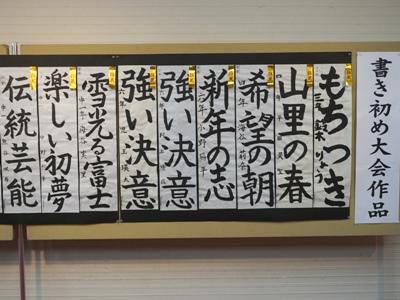 書き初め大会作品
もちつき
山里の春
希望の朝
新年の志
強い決意
強い決意
雪光る富士
楽しい初夢
伝統芸能